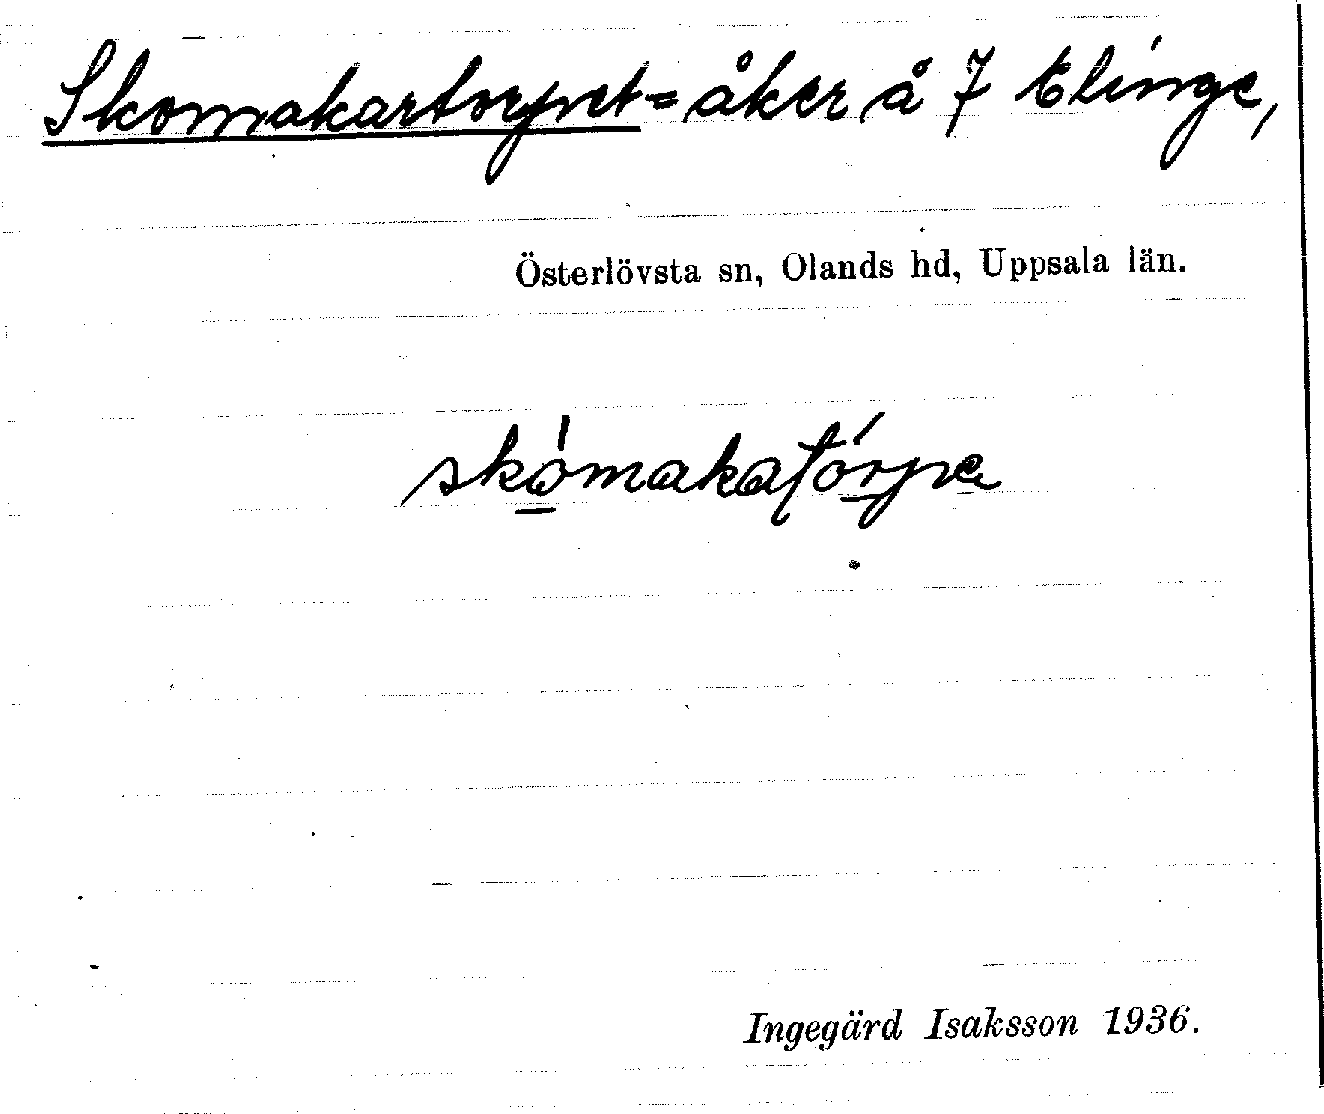 Skomakartorpet = åker å 7 Elinge,
Österlövsta sn, Olands hd, Uppsala län.
skómakatórpe
Ingegärd Isaksson 1936.